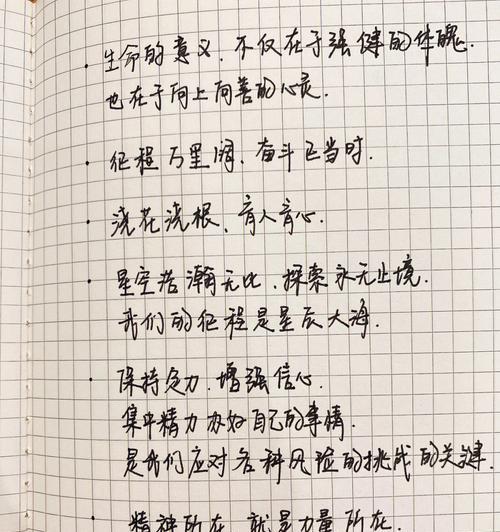 生命的意义,不仅在于强健的体魄
也在于向上向善的心灵.
征程万里阔,奋斗正当时.
浇花浇根,育人育心.
星空浩瀚无比,探索永无止境.
我们的征程是星辰大海.
保持定力.增强信心.
集中精力办好自己的事情.
是我们应对各种风险的挑战的关键.
精神所在,就是力量所在.